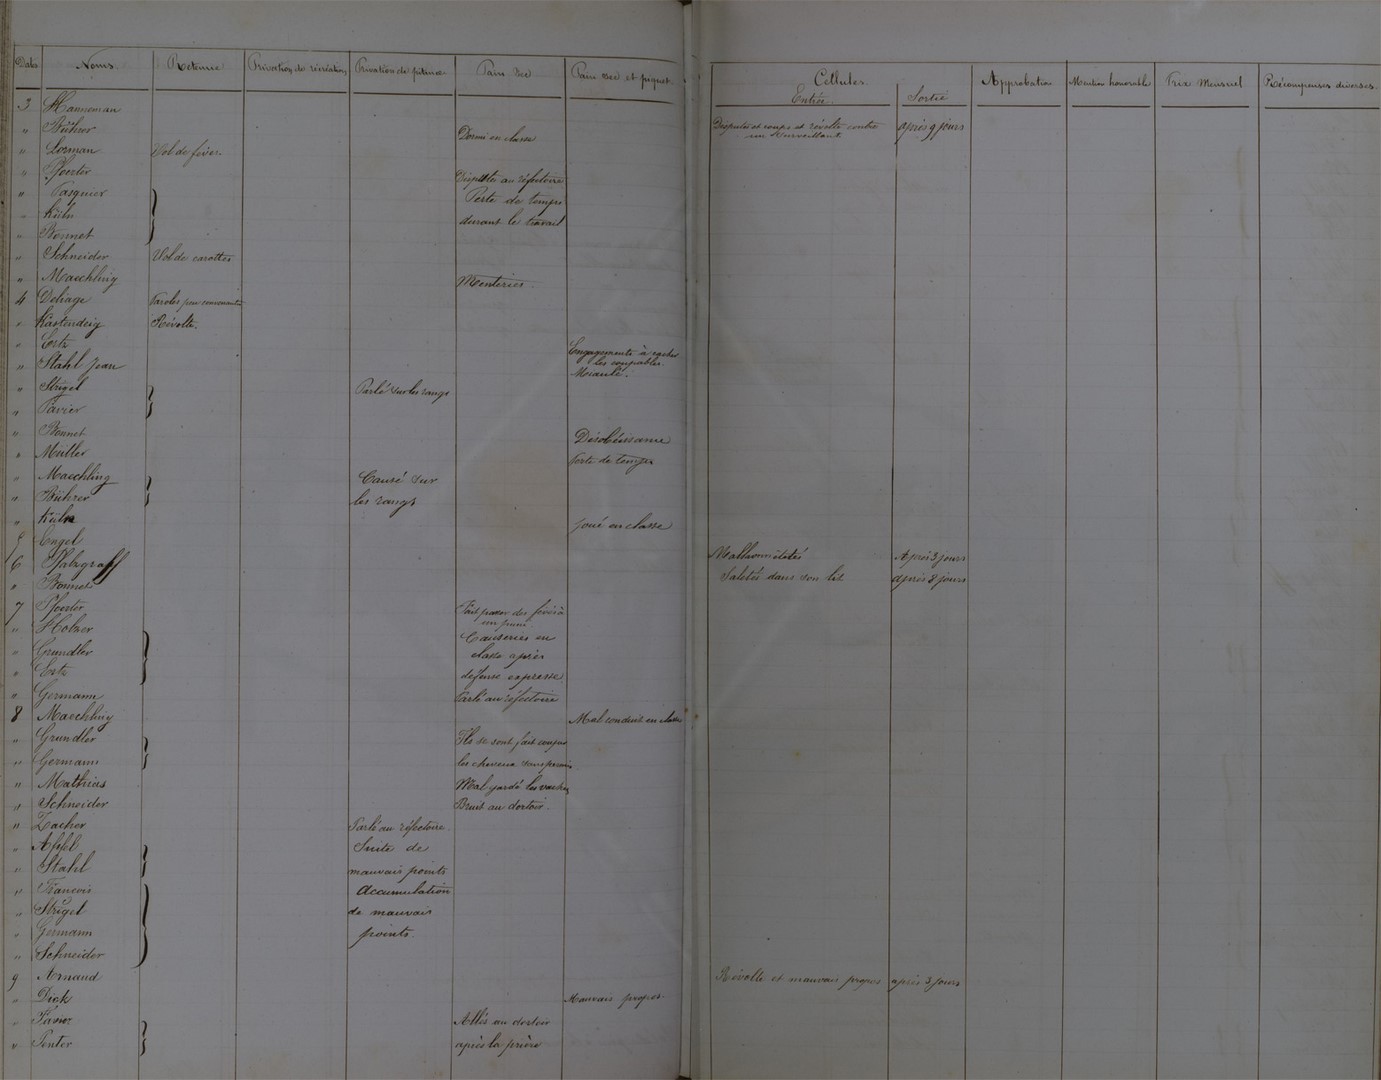 Date Noms. Retenue Privation de récréation Privation de pitance Pain sec Pain sec et piquet Cellules. Approbation Mention honorable Prix Mensuel Récompenses diverses.
Entrée. Sortie
3 Hanneman Disputes et coups et révolte contre un surveillant après 9 jours
" Bührer Dormi en classe
" Lorman Vol de fèves.
" Pfoerter Disputes au réfectoire
" Pasquier Perte de temps
" Kühn durant le travail
" Bonnet
" Schneider Vol de carottes
" Maechling Menteries.
4 Deliage Paroles peu convenantes
" Kastendeig Révolte.
" Ertz Engagements à cacher les coupables.
" Stahl Jean Moqué.
" Strigel Parlé sur les rangs
" Favier
" Bonnet Désobéissance
" Müller Perte de temps
" Maechling Causé sur
" Bührer les rangs
" Kühn Joué en classe
5 Engel
6 Pfalzgraff Malhonnêtetés Après 3 jours
" Bonnet Saletés dans son lit après 8 jours
7 Pfoerter Fait passer des fèves à un puni
" Holzer Causeries en
" Grundler classe après
" Ertz défense expresse.
" Germann Parlé au réfectoire
8 Maechling Mal conduit en classe
" Grundler Ils se sont fait couper
" Germann les cheveux sans permis.
" Mathias Mal gardé les vaches
" Schneider Bruit au dortoir.
" Zacher Parlé au réfectoire.
" Apfel Suite de
" Stahl mauvais points
" François Accumulation
" Strigel de mauvais
" Germann points.
" Schneider
9 Arnaud Révolte et mauvais propos après 3 jours
" Dick Mauvais propos
" Favier Allés au dortoir
" Penter après la prière